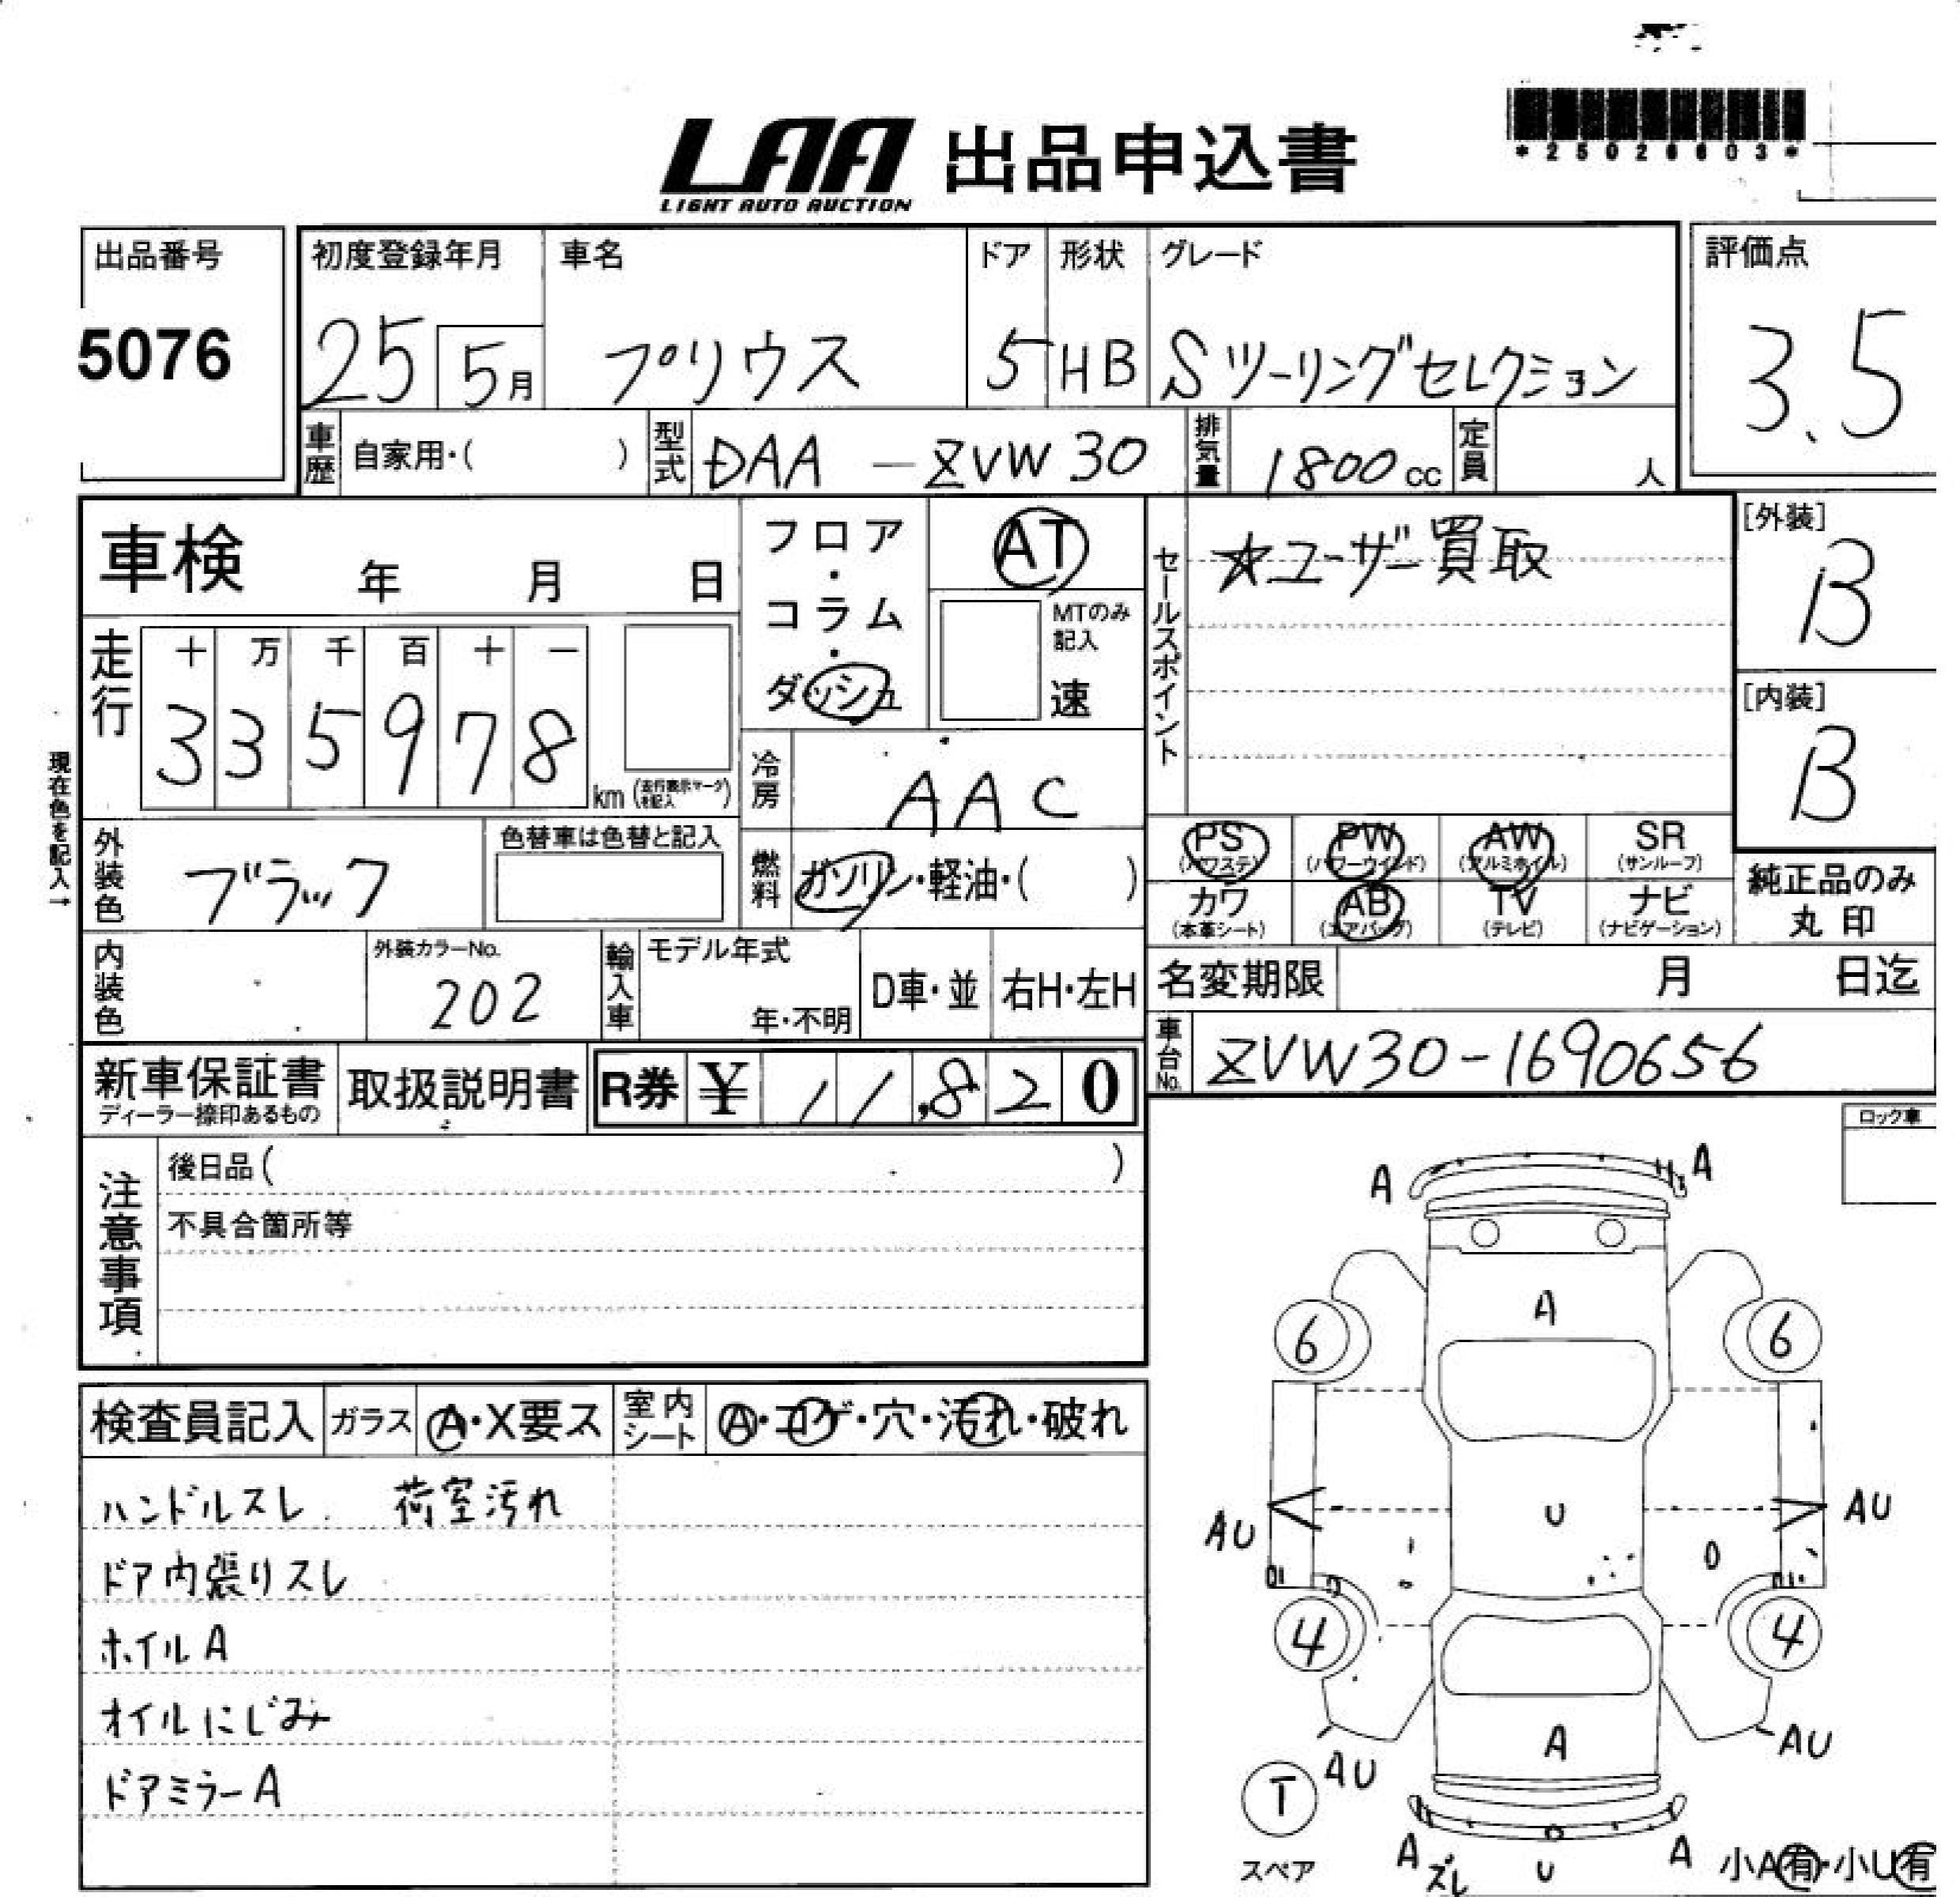 *25026603*
LAA 出品申込書
LIGHT AUTO AUCTION
出品番号
5076
初度登録年月
25 5月
車名
プリウス
ドア
5
形状
HB
グレード
Sツーリングセレクション
評価点
3.5
車歴 自家用・( )
型式 DAA-ZVW30
排気量 1800cc
定員 人
車検 年 月 日
フロア・コラム・ダッシュ
AT
MTのみ記入
速
セールスポイント
☆ユーザー買取
[外装]
B
[内装]
B
走行
十 万 千 百 十 一
3 3 5 9 7 8
km (走行表示マークを記入)
現在色を記入→
冷房 AAC
外装色 ブラック
色替車は色替と記入
燃料 ガソリン・軽油・( )
PS (パワステ)
PW (パワーウインド)
AW (アルミホイル)
SR (サンルーフ)
カワ (本革シート)
AB (エアバック)
TV (テレビ)
ナビ (ナビゲーション)
純正品のみ
丸印
内装色
外装カラーNo.
202
輸入車
モデル年式
年・不明
D車・並
右H・左H
名変期限 月 日迄
車台No. ZVW30-1690656
新車保証書
ディーラー捺印あるもの
取扱説明書
R券 ¥ 11,820
ロック車
注意事項
後日品( )
不具合箇所等
検査員記入
ガラス A・X要ス
室内シート A・コゲ・穴・汚れ・破れ
ハンドルスレ. 荷室汚れ
ドア内張りスレ
ホイルA
オイルにじみ
ドアミラーA
A A
A
6 6
U
AU AU
4 4
A
AU AU
T
スペア
A ズレ U A
小A有・小U有